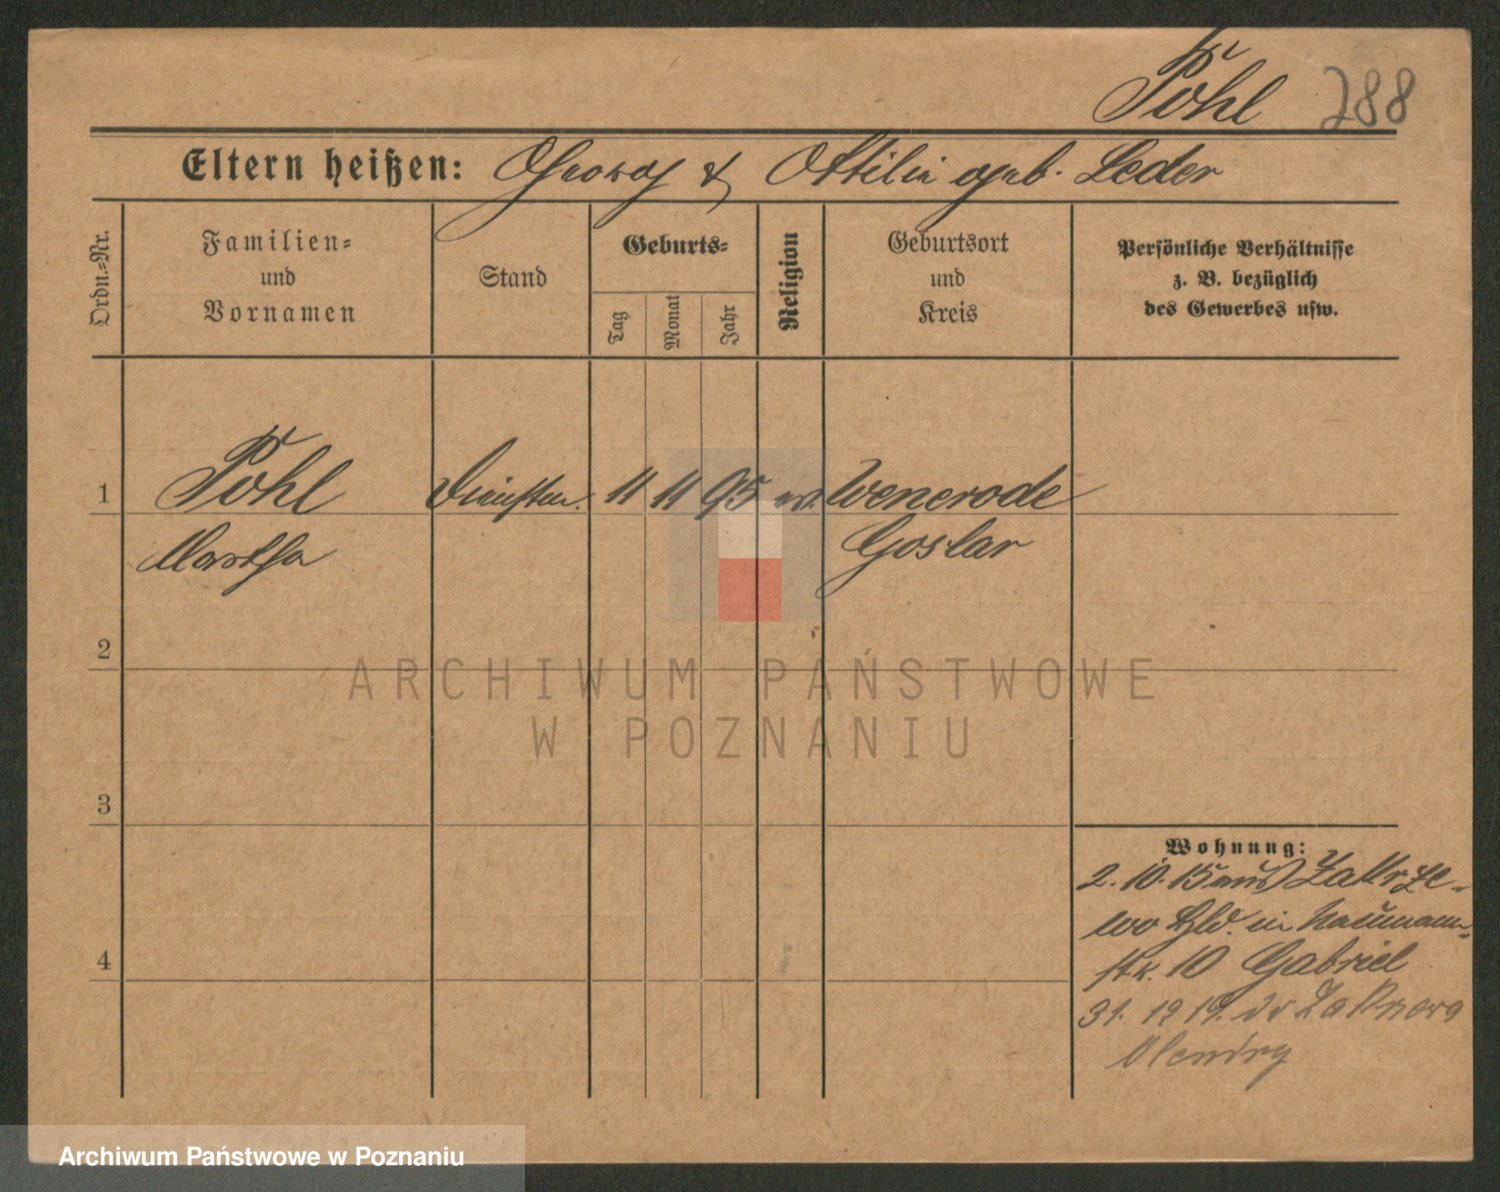 Pohl 288
Eltern heißen: Georg & Ottilie geb. Leder
Ordn.=Nr.
Familien=
und
Vornamen
Stand
Geburts=
Tag
Monat
Jahr
Religion
Geburtsort
und
Kreis
Persönliche Verhältnisse
z. B. bezüglich
des Gewerbes usw.
1 Pohl 11 11 95 Wenerode
Martha Goslar
2
3
4
Wohnung:
2. 10. 15 aus Zakrze-
wo Hld. in Naumann-
str. 10 Gabriel
31. 12 19. do
Olendry
ARCHIWUM PAŃSTWOWE
W POZNANIU
Archiwum Państwowe w Poznaniu